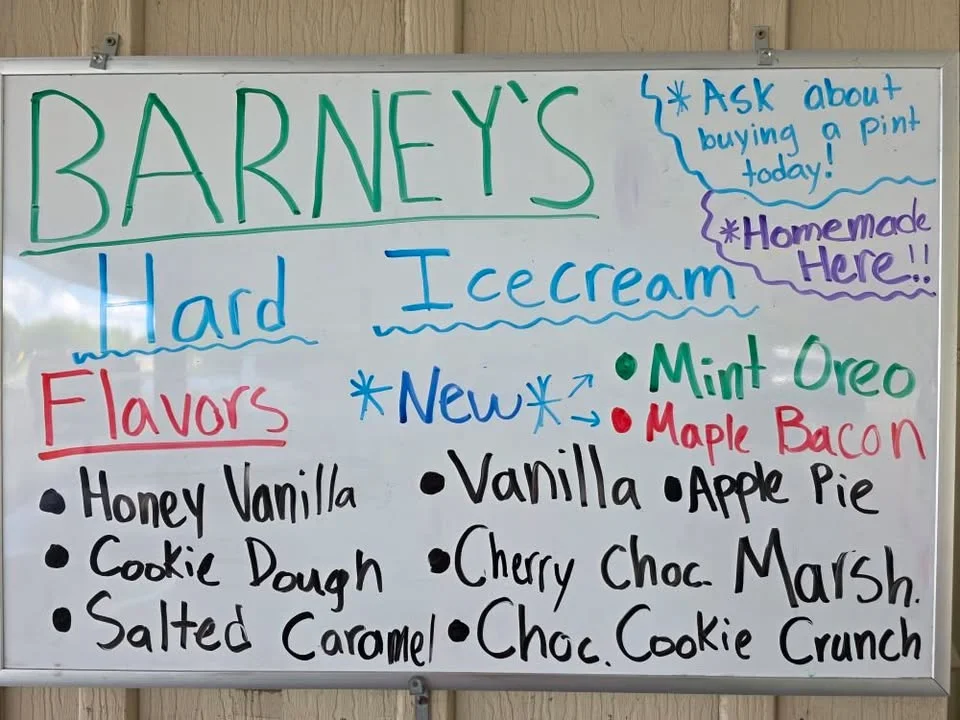 BARNEY'S
*Ask about
buying a pint
today!
*Homemade
Here!!
Hard Icecream
Flavors
*New*
• Mint Oreo
• Maple Bacon
• Honey Vanilla • Vanilla • Apple Pie
• Cookie Dough • Cherry Choc. Marsh.
• Salted Caramel • Choc. Cookie Crunch